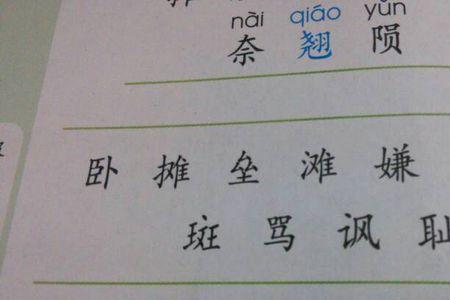 nài qiáo yǔn
奈 翘 陨
卧 摊 垒 滩 嫌
斑 骂 讽 耻